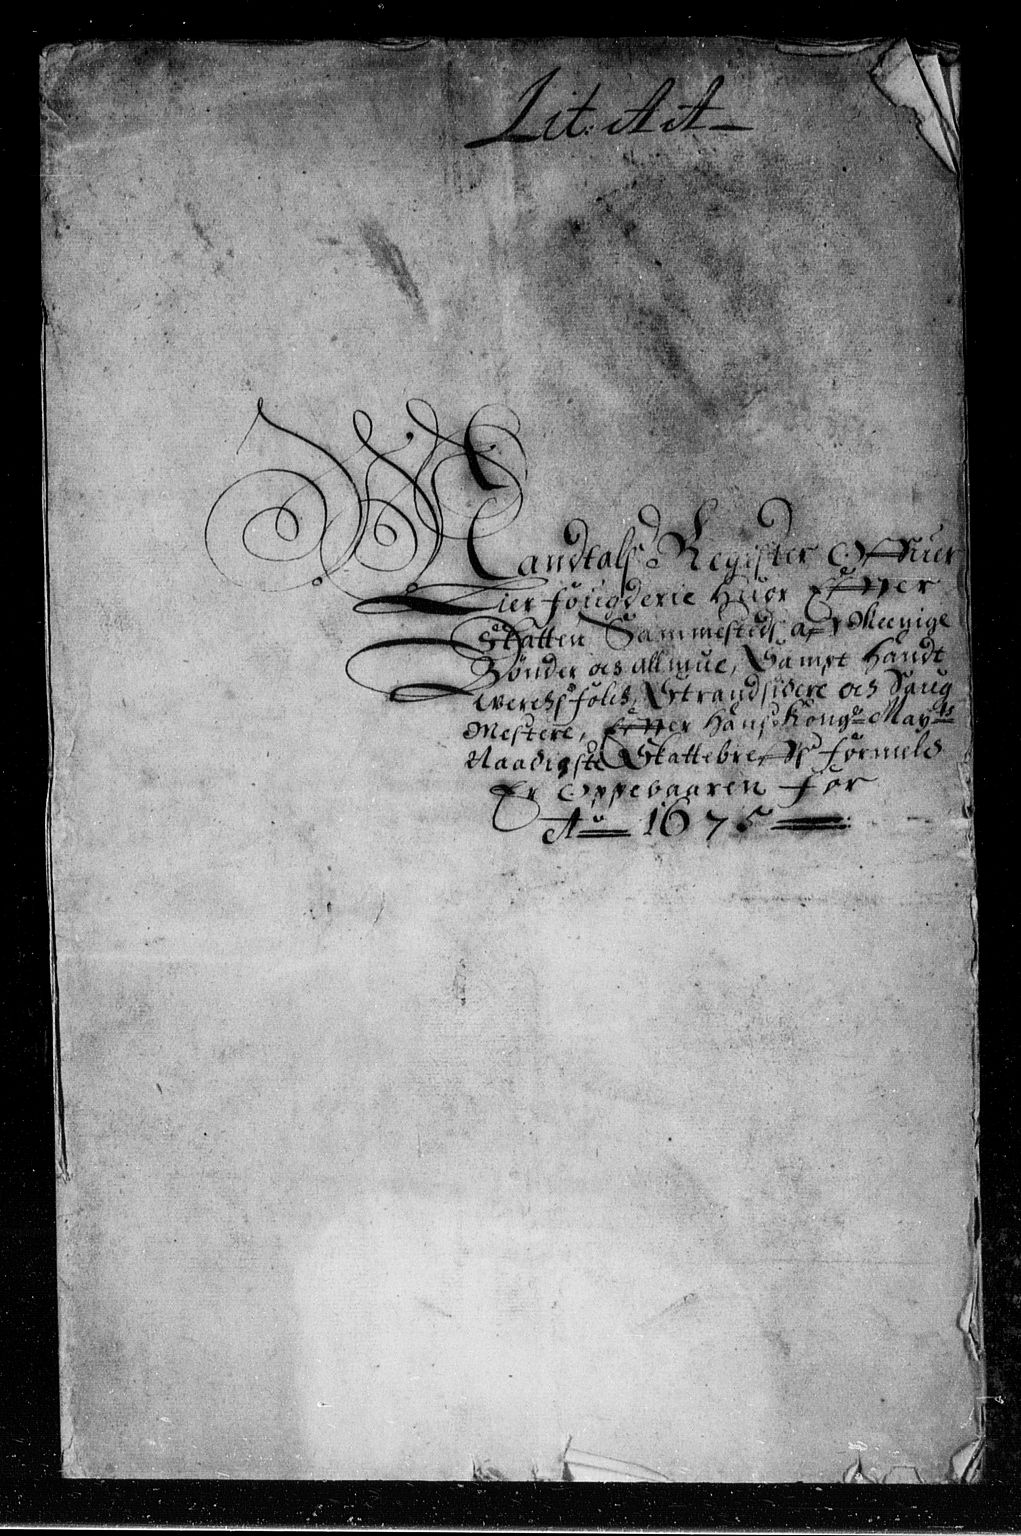 Lit: AA
Mandtals Register Offuer
Lier fougderie Huor Efter
Skatten Sammesteds af Meenige
Bønder och Allmue, Sampt Handt
wercks folck, Strandsidere och Saug
Mestere, Efter Hans Kong: May:ts
Naadigste Skattebrefs formeld
Er Oppebaaren for
A:o 1675